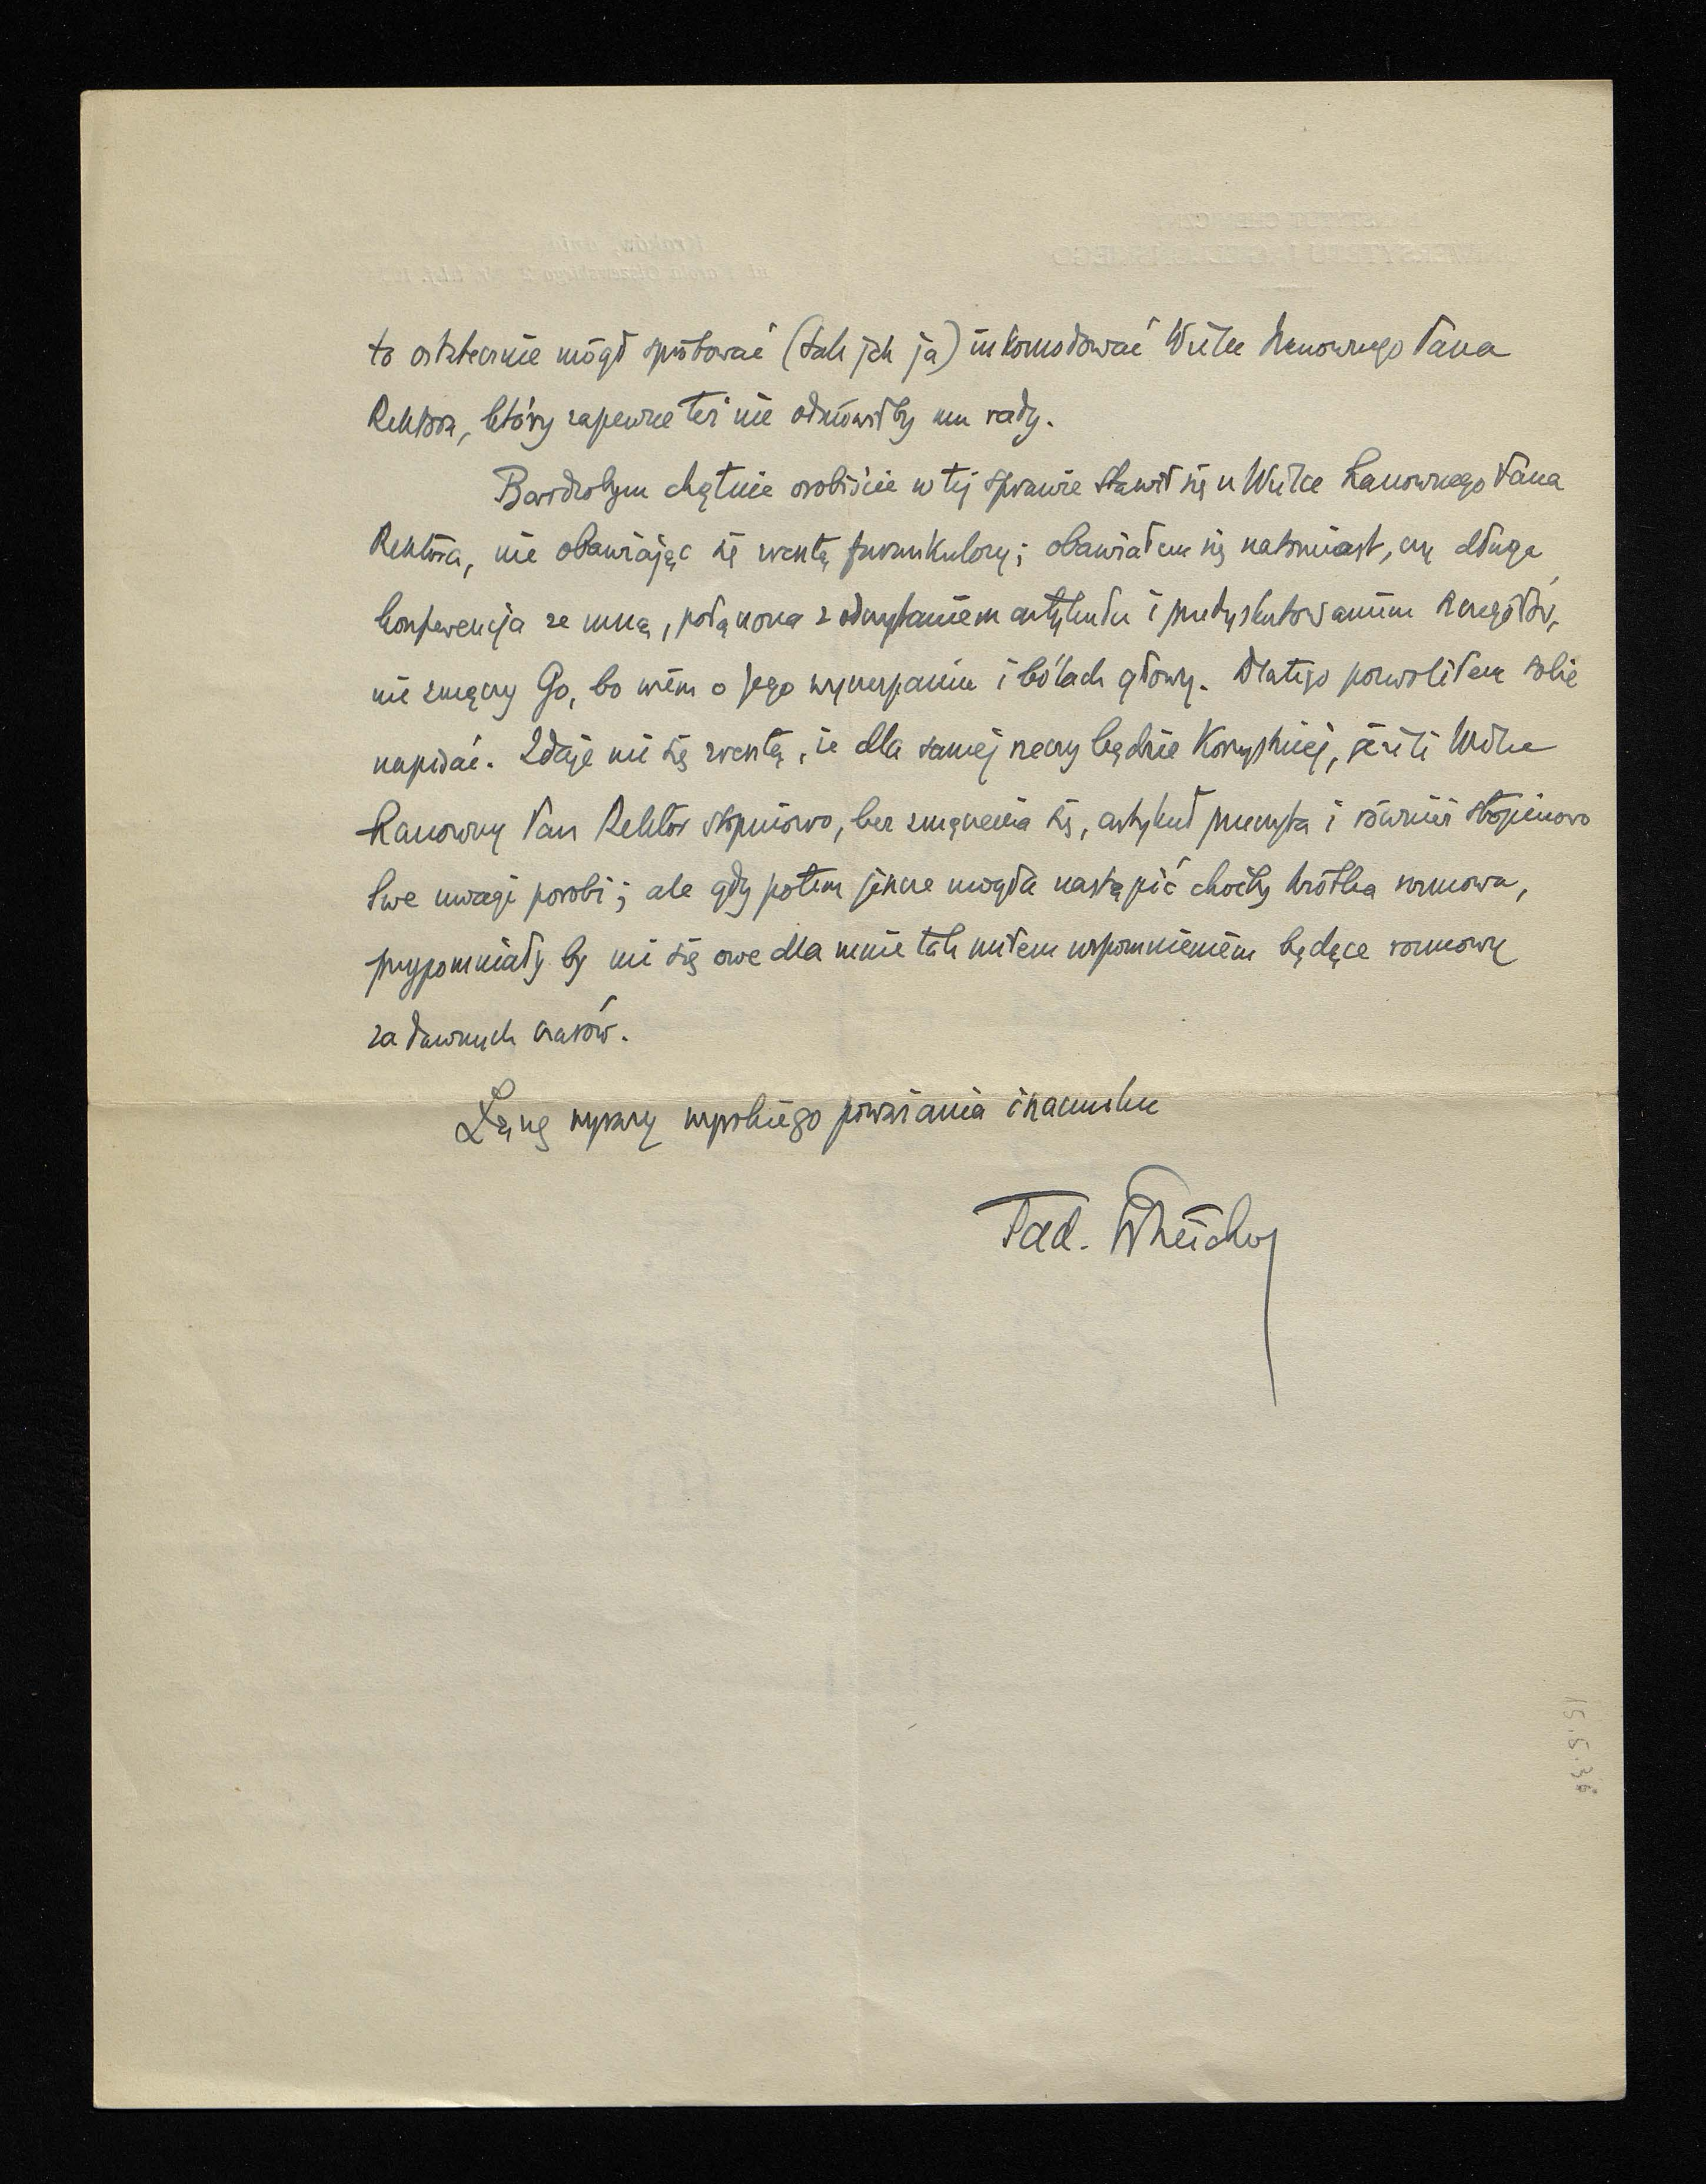 to ostatecznie mógł spróbować (tak jak ja) inkomodować Wielce Szanownego Pana
Rektora, który zapewne też nie odmówiłby mu rady.
Bardzobym chętnie osobiście w tej sprawie stawił się u Wielce Szanownego Pana
Rektora, nie obawiając się zresztą furunkulozy; obawiałem się natomiast, czy długa
konferencja ze mną, połączona z odczytaniem artykułu i przedyskutowaniem szczegółów,
nie zmęczy Go, bo wiem o Jego wyczerpaniu i bólach głowy. Dlatego pozwoliłem sobie
napisać. Zdaje mi się zresztą, że dla samej rzeczy będzie korzystniej, jeżeli Wielce
Szanowny Pan Rektor stopniowo, bez zmęczenia się, artykuł przeczyta i również stopniowo
swe uwagi porobi; ale gdy potem jeszcze mogła nastąpić choćby krótka rozmowa,
przypomniały by mi się owe dla mnie tak miłem wspomnieniem będące rozmowy
za dawnych czasów.
Łączę wyrazy wysokiego poważania i szacunku
Tad. Estreicher
15.5.36